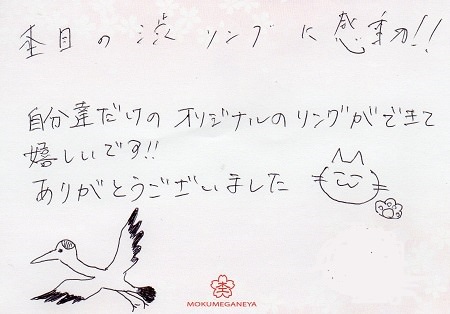 杢目の渋リングに感動!!
自分達だけのオリジナルのリングができて
嬉しいです!!
ありがとうございました
杢
MOKUMEGANEYA